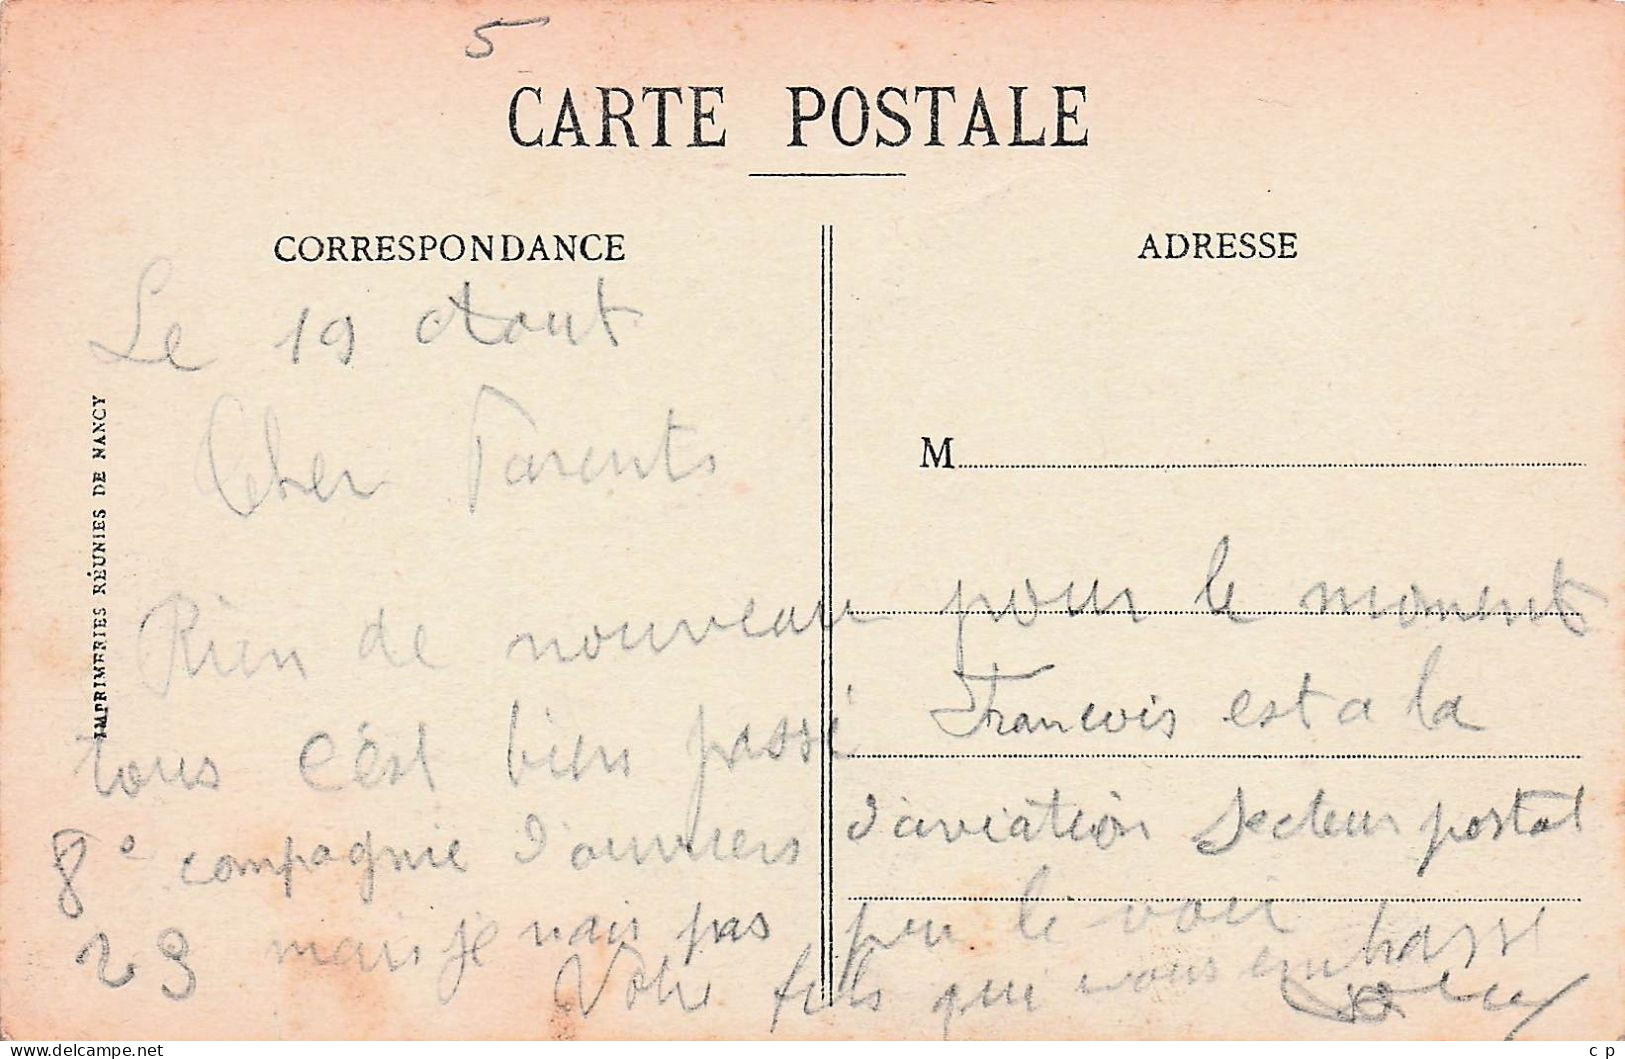 5
CARTE POSTALE
CORRESPONDANCE
ADRESSE
IMPRIMERIES RÉUNIES DE NANCY
M
Le 19 Aout
Cher Parents
Rien de nouveau pour le moment
tous c'est bien passé François est a la
8e compagnie d'ouvriers d'aviation Secteur postal
23 mais je nais pas peu le voir
Votre fils qui vous embrasse